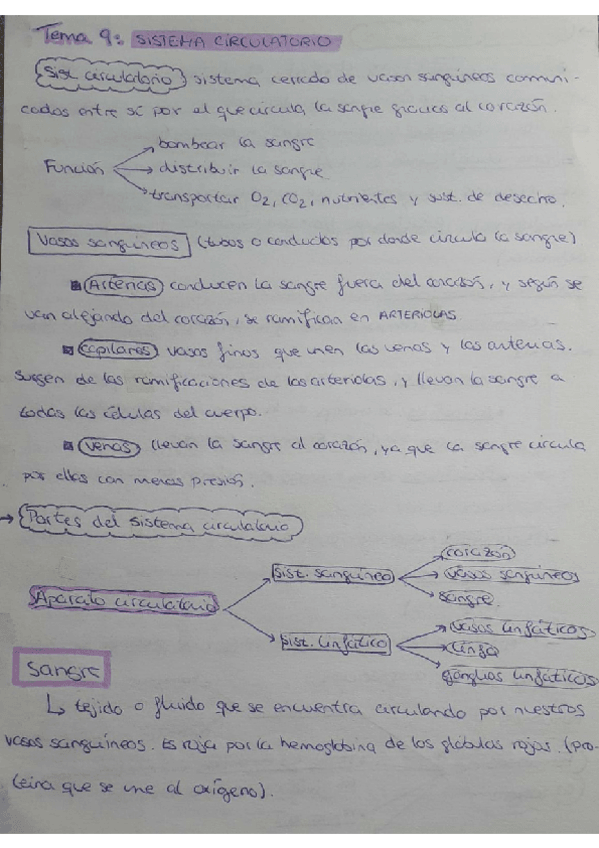 Tema 9: SISTEMA CIRCULATORIO
Sist. circulatorio sistema cerrado de vasos sanguíneos comuni-
cados entre sí por el que circula la sangre gracias al corazón.
bombear la sangre
Función distribuir la sangre
transportar O2, CO2, nutrientes y sust. de desecho.
Vasos sanguíneos (tubos o conductos por donde circula la sangre)
Arterias conducen la sangre fuera del corazón, y según se
van alejando del corazón, se ramifican en ARTERIOLAS
capilares vasos finos que unen las venas y las arterias.
Surgen de las ramificaciones de las arteriolas, y llevan la sangre a
todas las células del cuerpo.
venas llevan la sangre al corazón, ya que la sangre circula
por ellas con menos presión.
→ Partes del sistema circulatorio
corazón
sist. sanguíneo vasos sanguíneos
sangre
Aparato circulatorio
vasos linfáticos
sist. linfático linfa
ganglios linfáticos
Sangre
↳ tejido o fluido que se encuentra circulando por nuestros
vasos sanguíneos. Es roja por la hemoglobina de los glóbulos rojos. (pro-
teína que se une al oxígeno).